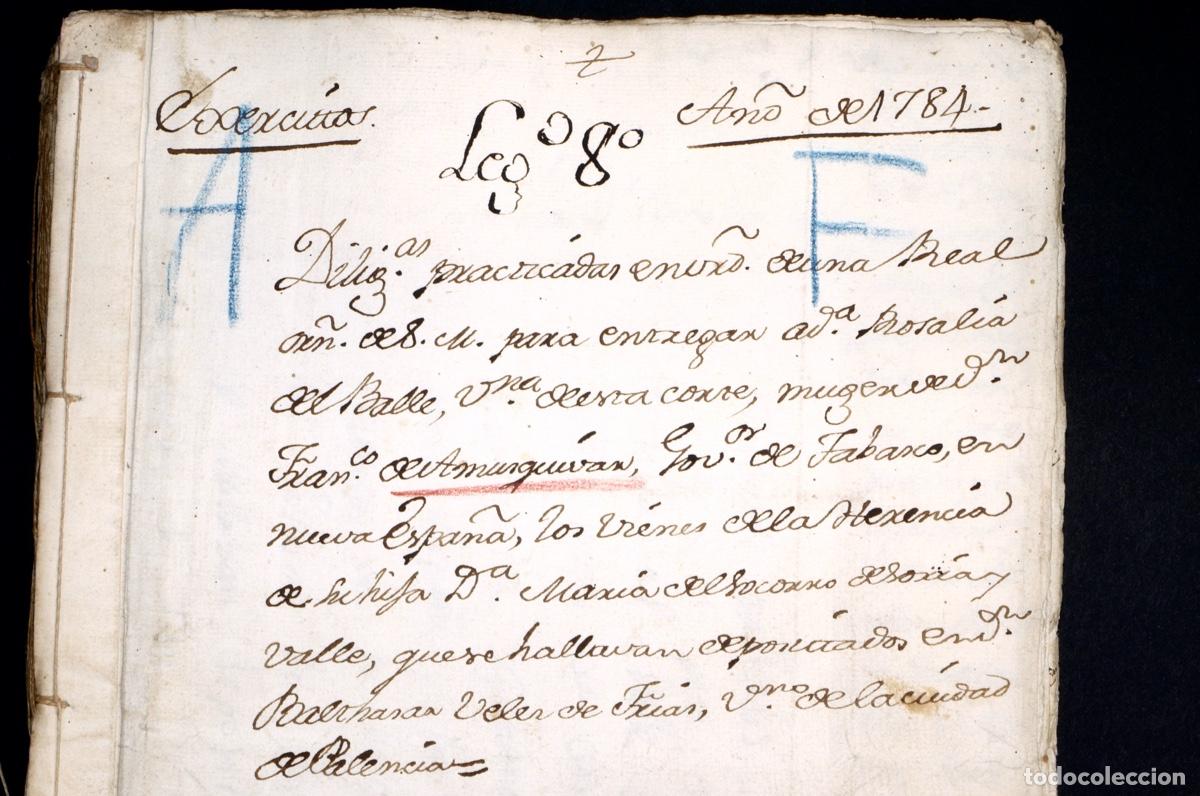 Exercitos.
Año de 1784-
Leg.º 8º
A
F
Dilig.as practicadas en vrd. de una Real
orn. de S. M. para entregar a d.ª Rosalia
del Balle, v.na de esta corte, muger de d.n
Fran.co de Amusquivar, Gov.or de Tabasco, en
nueva España, los vienes de la Herencia
de su hija D.ª Maria del Socorro de Soria y
valle, que se hallavan deposítados en d.n
Balthasar Veles de Frias, v.no de la ciudad
de Palencia=
todocoleccion